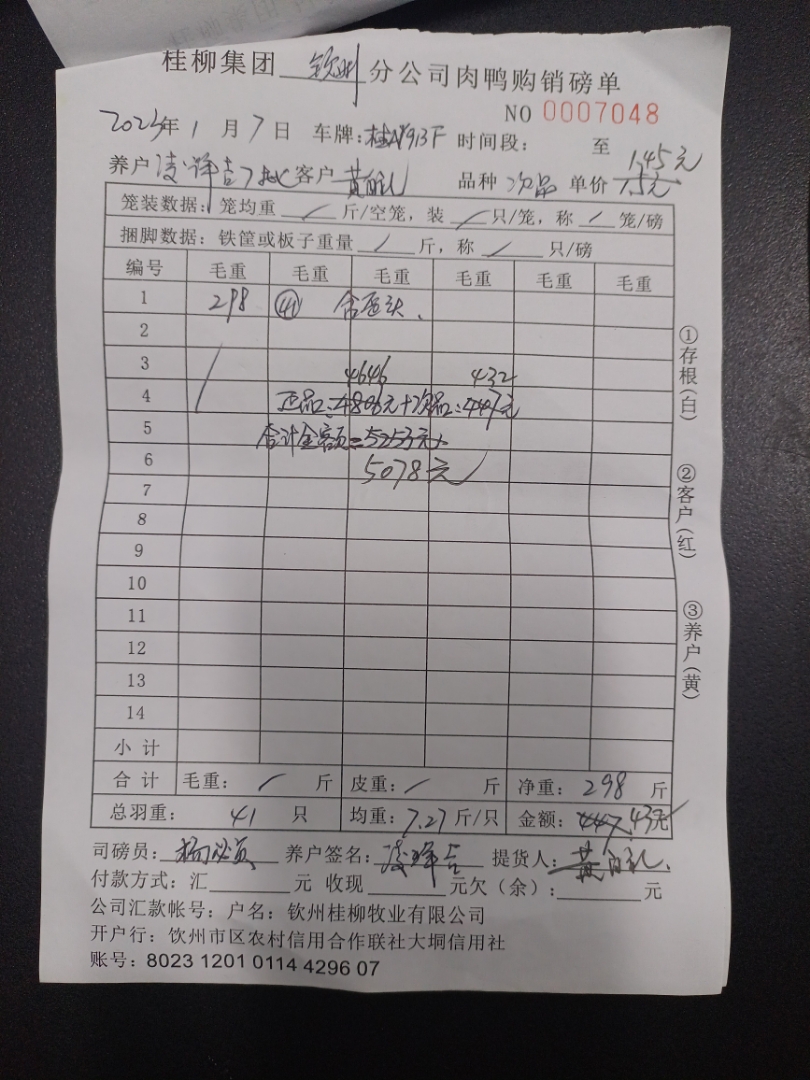 桂柳集团 钦州 分公司肉鸭购销磅单
NO 0007048
2023年 1 月 7 日 车牌: 时间段: 至
1.45元
养户 客户 品种 次品 单价 1.5元
笼装数据: 笼均重 / 斤/空笼, 装 / 只/笼, 称 / 笼/磅
捆脚数据: 铁筐或板子重量 / 斤, 称 / 只/磅
编号 毛重 毛重 毛重 毛重 毛重 毛重
1 298 41
2
3 4646 432
4 正品:4806元+次品:447元
5 合计金额=5253元
6 5078元
7
8
9
10
11
12
13
14
小 计
合 计 毛重: / 斤 皮重: / 斤 净重: 298 斤
总羽重: 41 只 均重: 7.27 斤/只 金额: 447 43元
司磅员: 养户签名: 提货人:
付款方式: 汇 元 收现 元欠(余): 元
公司汇款帐号: 户名: 钦州桂柳牧业有限公司
开户行: 钦州市区农村信用合作联社大垌信用社
账号: 8023 1201 0114 4296 07
①存根(白)
②客户(红)
③养户(黄)